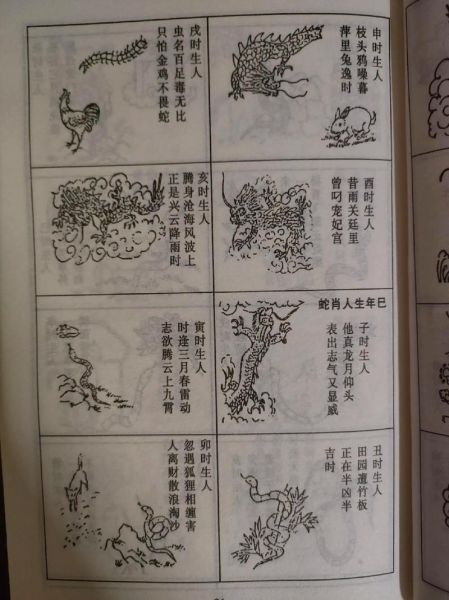 申时生人
枝头鸦噪暮
萍里兔逸时
酉时生人
昔雨关廷里
曾叼宠妃宫
戌时生人
虫名百足毒无比
只怕金鸡不畏蛇
亥时生人
腾身沧海风波上
正是兴云降雨时
巳年生人肖蛇
子时生人
他真龙月仰头
表出志气又显威
丑时生人
田园遭竹板
正在半凶半
吉时
寅时生人
时逢三月春雷动
志欲腾云上九霄
卯时生人
忽遇狐狸相缠害
人离财散浪淘沙